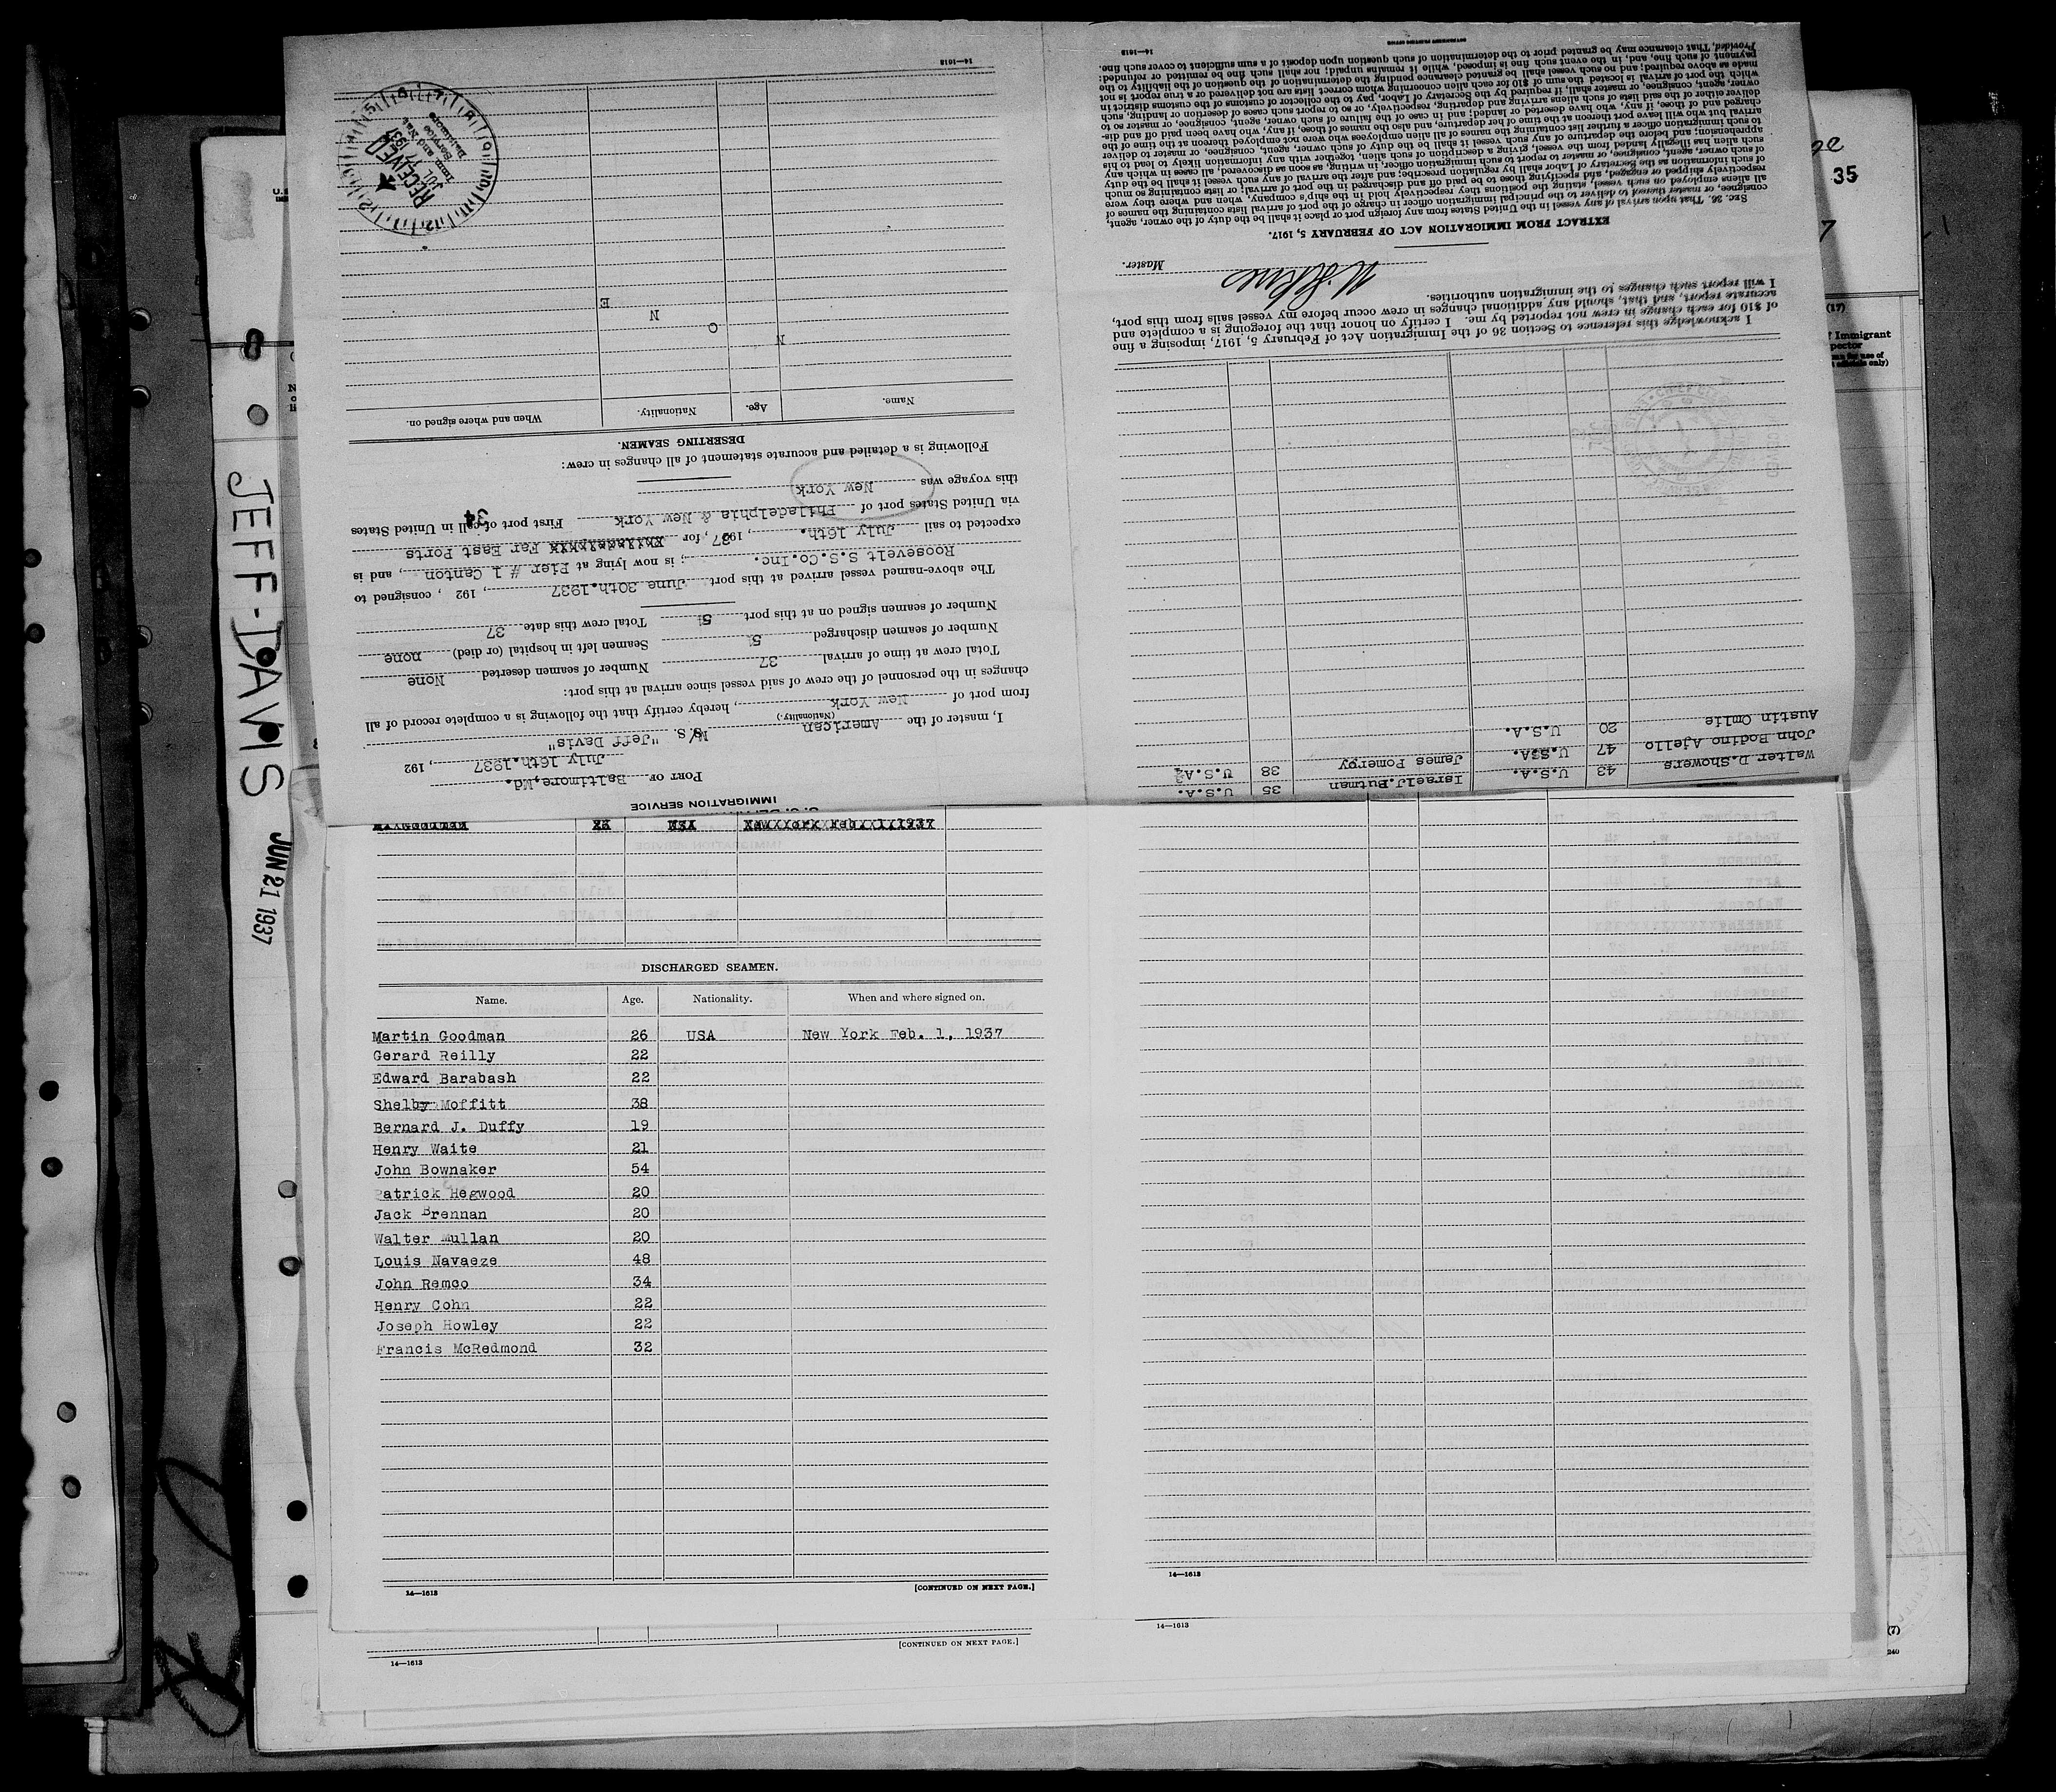 JEFF-DAVIS
JUN 21 1937
35
(17)
Immigrant
14—1613
Provided, That clearance may be granted prior to the determination of such question upon deposit of a sum sufficient to cover such fine.
RECEIVED
JUL 17 1937
Baltimore
U. S.
IMMIGRATION SERVICE
PORT OF Baltimore,Md.
July 16th.1937, 192
I, master of the American M/s. "Jeff Davis"
(Nationality.)
from port of New York, hereby certify that the following is a complete record of all
changes in the personnel of the crew of said vessel since arrival at this port:
Total crew at time of arrival 37 Number of seamen deserted None
Number of seamen discharged 5 Seamen left in hospital (or died) none
Number of seamen signed on at this port 5 Total crew this date 37
The above-named vessel arrived at this port June 30th.1937, 192 , consigned to
Roosevelt S.S.Co.Inc. ; is now lying at Pier # 1 Canton, and is
expected to sail July 16th., 1937, for Far East Ports
via United States port of Philadelphia & New York First port of call in United States
this voyage was New York
34
Following is a detailed and accurate statement of all changes in crew:
DESERTING SEAMEN.
Name. Age. Nationality. When and where signed on.
N O N E
14—1613
Walter D.Showers 43 U.S.A. Israel J.Butman 35 U.S.A.
John Bodino Ajello 47 U.S.A. James Pomergy 38 U.S.A.
Austin Omlie 20 U.S.A.
I acknowledge this reference to Section 36 of the Immigration Act of February 5, 1917, imposing a fine
of $10 for each change in crew not reported by me. I certify on honor that the foregoing is a complete and
accurate report, and that, should any additional changes in crew occur before my vessel sails from this port,
I will report such changes to the immigration authorities.
Master.
EXTRACT FROM IMMIGRATION ACT OF FEBRUARY 5, 1917.
SEC. 36. That upon arrival of any vessel in the United States from any foreign port or place it shall be the duty of the owner, agent,
consignee, or master thereof to deliver to the principal immigration officer in charge of the port of arrival lists containing the names of
all aliens employed on such vessel, stating the positions they respectively hold in the ship's company, when and where they were
respectively shipped or engaged, and specifying those to be paid off and discharged in the port of arrival; or lists containing so much
of such information as the Secretary of Labor shall by regulation prescribe; and after the arrival of any such vessel it shall be the duty
of such owner, agent, consignee, or master to report to such immigration officer, in writing, as soon as discovered, all cases in which any
such alien has illegally landed from the vessel, giving a description of such alien, together with any information likely to lead to his
apprehension; and before the departure of any such vessel it shall be the duty of such owner, agent, consignee, or master to deliver
to such immigration officer a further list containing the names of all alien employees who were not employed thereon at the time of the
arrival but who will leave port thereon at the time of her departure, and also the names of those, if any, who have been paid off and dis-
charged and of those, if any, who have deserted or landed; and in case of the failure of such owner, agent, consignee, or master so to
deliver either of the said lists of such aliens arriving and departing, respectively, or so to report such cases of desertion or landing, such
owner, agent, consignee, or master shall, if required by the Secretary of Labor, pay to the collector of customs of the customs district in
which the port of arrival is located the sum of $10 for each alien concerning whom correct lists are not delivered or a true report is not
made as above required; and no such vessel shall be granted clearance pending the determination of the question of the liability to the
payment of such fine, and, in the event such fine is imposed, while it remains unpaid; nor shall such fine be remitted or refunded:
DISCHARGED SEAMEN.
Name. Age. Nationality. When and where signed on.
Martin Goodman 26 USA New York Feb. 1, 1937
Gerard Reilly 22
Edward Barabash 22
Shelby Moffitt 38
Bernard J. Duffy 19
Henry Waite 21
John Bownaker 54
Patrick Hegwood 20
Jack Brennan 20
Walter Mullan 20
Louis Navaeze 48
John Remco 34
Henry Cohn 22
Joseph Howley 22
Francis McRedmond 32
14—1613 [CONTINUED ON NEXT PAGE.]
14—1613
[CONTINUED ON NEXT PAGE.]
14—1613
14—1613
(7)
240